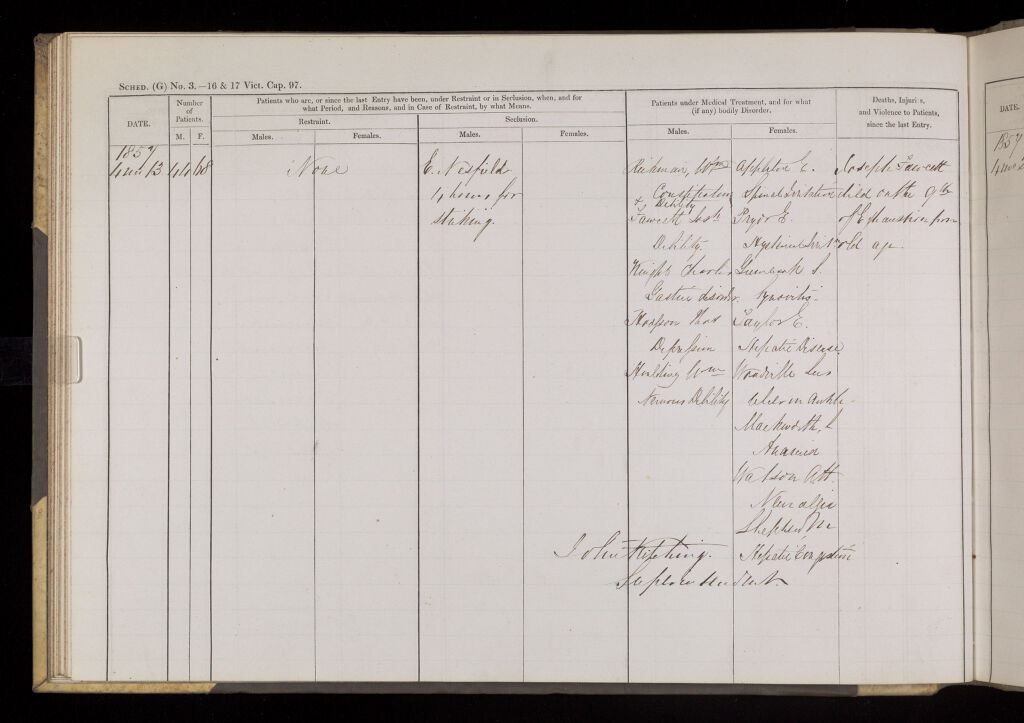 SCHED. (G) No. 3.—16 & 17 Vict. Cap. 97.
DATE.
Number of Patients.
M. F.
Patients who are, or since the last Entry have been, under Restraint or in Seclusion, when, and for
what Period, and Reasons, and in Case of Restraint, by what Means.
Restraint.
Seclusion.
Males. Females. Males. Females.
Patients under Medical Treatment, and for what
(if any) bodily Disorder.
Males. Females.
Deaths, Injuries,
and Violence to Patients,
since the last Entry.
1857
4 mo 13 44 48
None
E. Nesfield
4 hours for
striking.
Wm
Constipation
& Debility
Fawcett Josh
Debility.
Knight Charles
Gastric disorder.
Hodgson Thos
Depression
Wm
Nervous Debility
Appleton E.
Spinal Irritation
Pryor E.
Hysterical Irritn
S.
Synovitis.
Taylor E.
Hepatic Disease
Woodville
Ulcer on Ankle
Mackworth, L
Anaemia
Watson A H.
Neuralgia
Shepherd M
Hepatic Congestion
Joseph Fawcett
died on the 9th
of Exhaustion from
old age.
John Kitching.
Superintendent.
DATE.
1857
4 mo